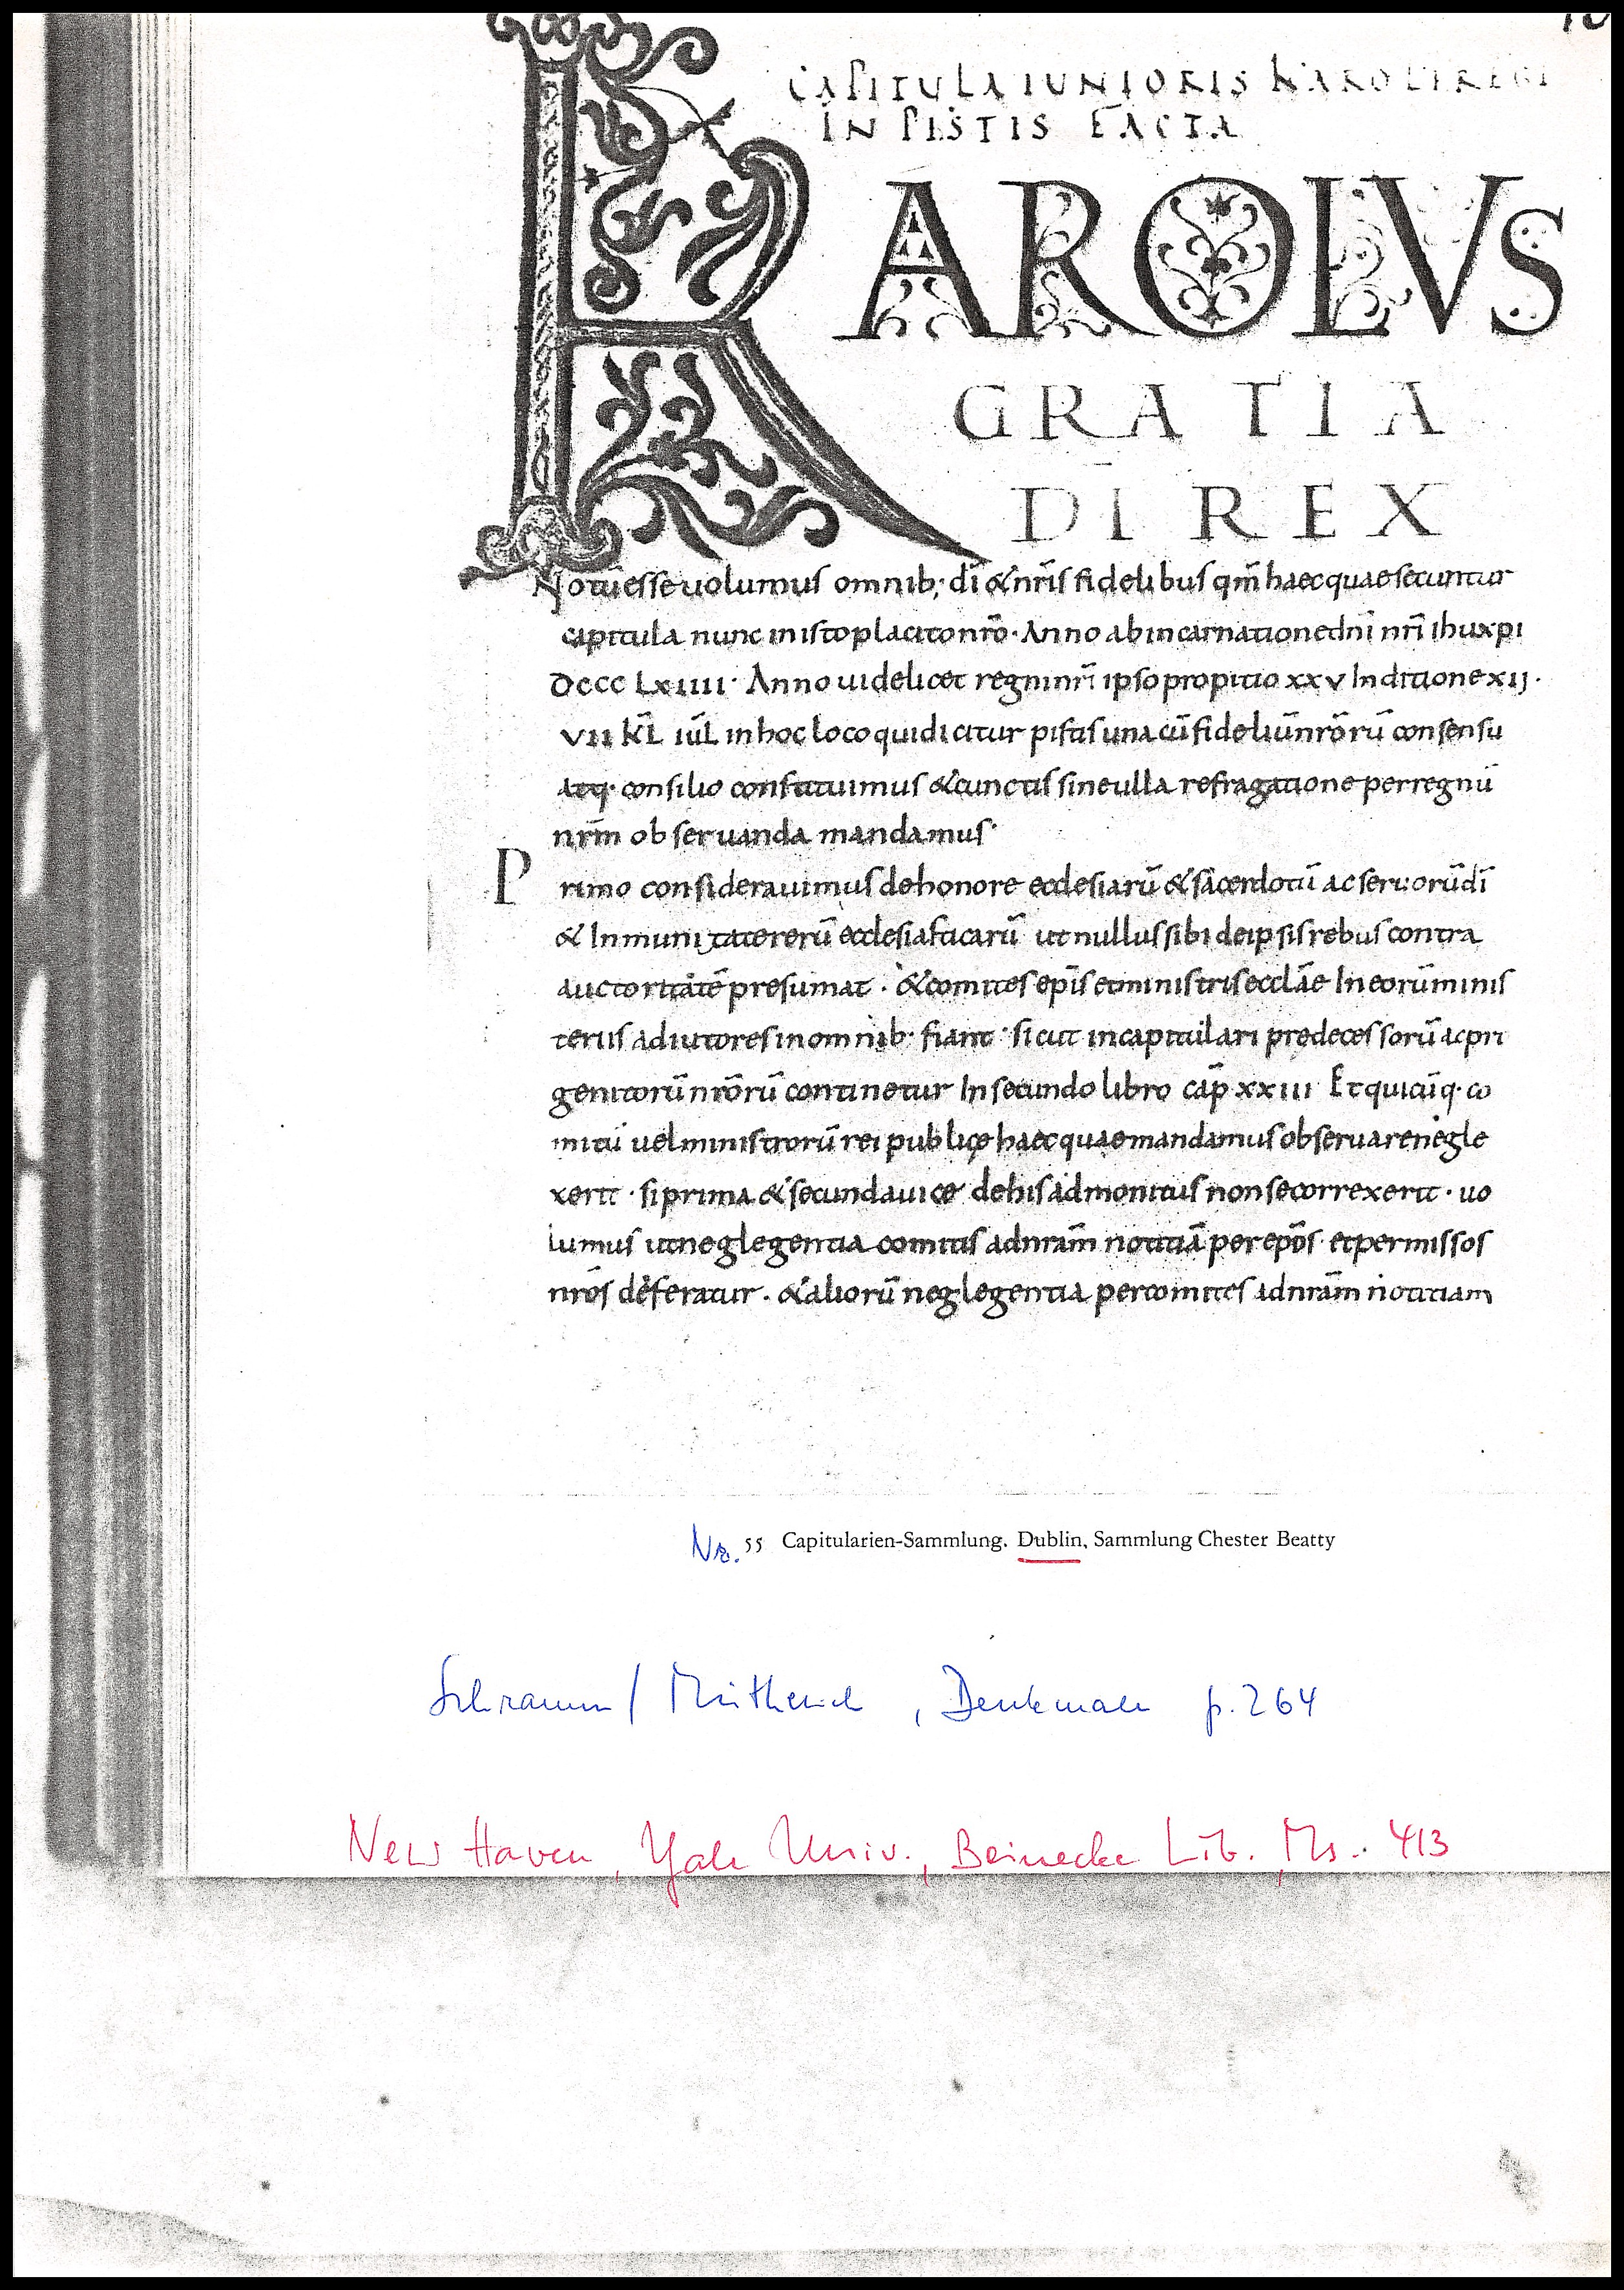 CAPITULA IUNIORIS KAROLI REGI
IN PISTIS FACTA
KAROLVS
GRATIA
DĪ REX
Notū esse uolumus omnib; dī & nr̄is fidelibus qm̄ haec quae secuntur
capitula nunc in isto placito nrō· Anno ab incarnatione dnī nrī ihu xpi
DCCC LXIIII· Anno uidelicet regni nrī ipso propitio xxv Inditione xij·
VII KL̄ iūl in hoc loco qui dicitur pistis una cū fideliū nrōrū consensu
atq· consilio constituimus & cunctis sine ulla refragatione per regnū
nrm̄ obseruanda mandamus·
Primo considerauimus de honore ecclesiarū & sacerdotū ac seruorū dī
& Inmunitate rerū ecclesiasticarū ut nullus sibi de ipsis rebus contra
auctoritatē presumat · & comites epīs et ministris ecclāe In eorū minis
teriis adiutores in omnib· fiant · sicut in capitulari predecessorū ac pri
genitorū nrōrū continetur In secundo libro cap̄ xxiii Et quicūq· co
mitū uel ministrorū rei publicę haec quae mandamus obseruare negle
xerit · si prima & secunda uice de his admonitus non se correxerit · uo
lumus ut neglegentia comitis ad nrām notitiā per epōs et per missos
nrōs deferatur · & aliorū neglegentia per comites ad nrām notitiam
Nr. 55 Capitularien-Sammlung. Dublin, Sammlung Chester Beatty
Schramm / Mütherich, Denkmale p. 264
New Haven, Yale Univ., Beinecke Lib. Ms. 413